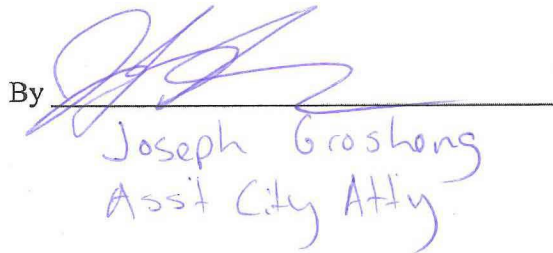 By
Joseph Groshong
Ass't City Att'y